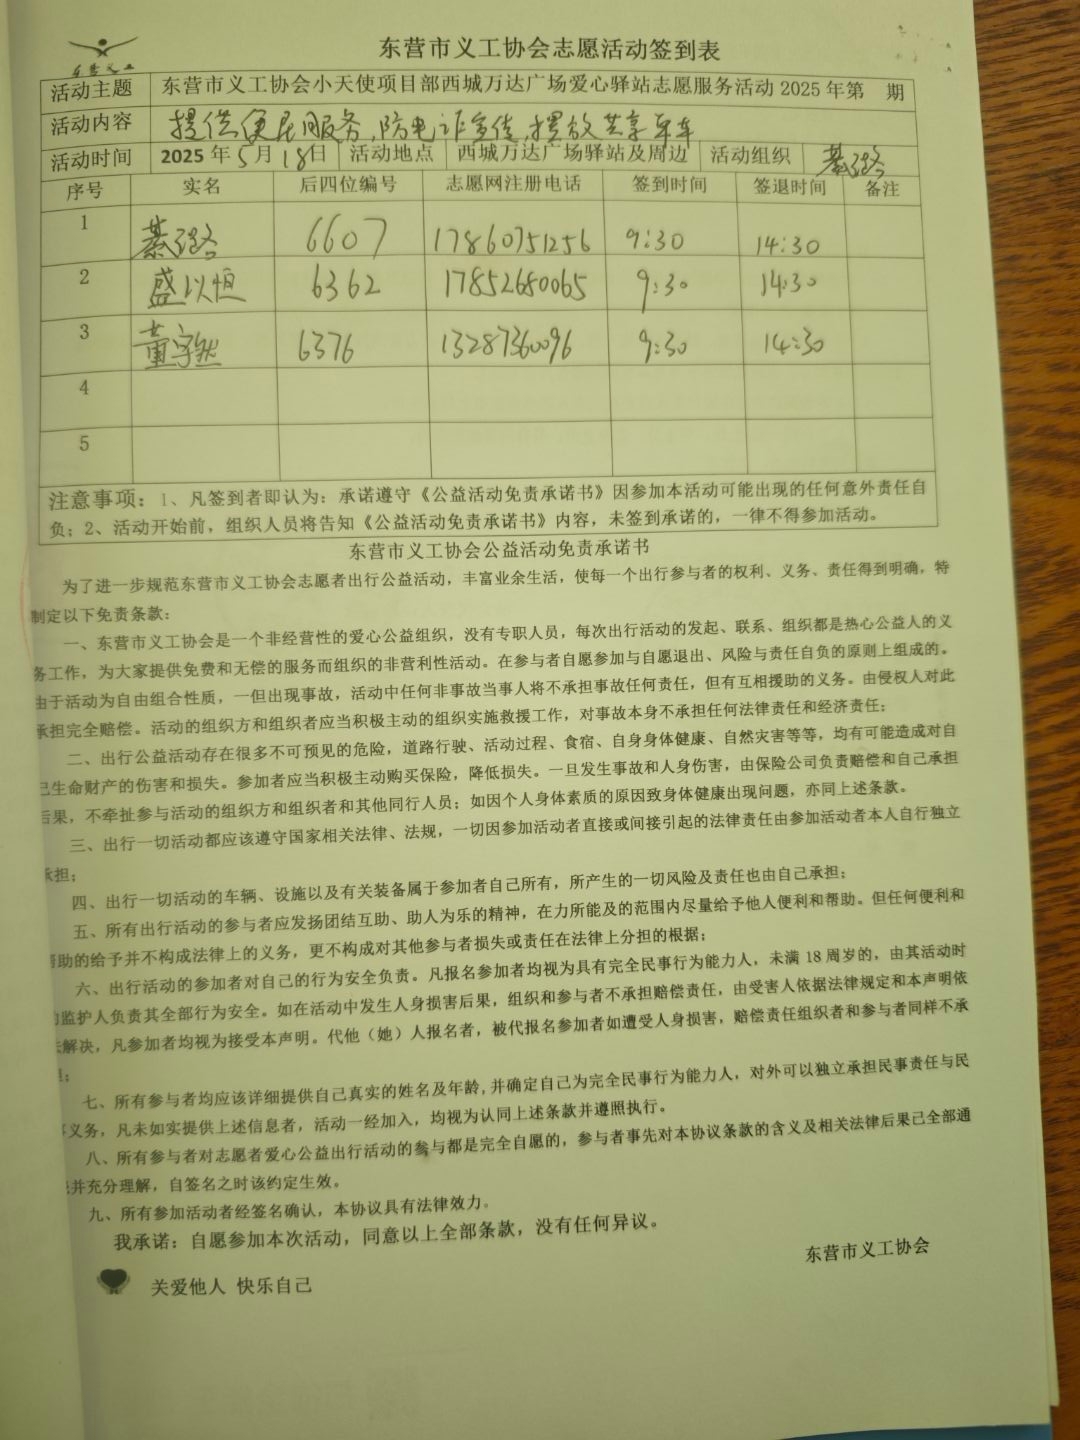 东营市义工协会志愿活动签到表
东营义工
活动主题 东营市义工协会小天使项目部西城万达广场爱心驿站志愿服务活动 2025 年第 期
活动内容 提供便民服务,防电诈宣传,摆放共享单车
活动时间 2025 年 5 月 18 日 活动地点 西城万达广场驿站及周边 活动组织 綦
序号 实名 后四位编号 志愿网注册电话 签到时间 签退时间 备注
1 綦 6607 17860751256 9:30 14:30
2 盛以恒 6362 17852680065 9:30 14:30
3 董字然 6376 13287360096 9:30 14:30
4
5
注意事项:1、凡签到者即认为:承诺遵守《公益活动免责承诺书》因参加本活动可能出现的任何意外责任自
负;2、活动开始前,组织人员将告知《公益活动免责承诺书》内容,未签到承诺的,一律不得参加活动。
东营市义工协会公益活动免责承诺书
为了进一步规范东营市义工协会志愿者出行公益活动,丰富业余生活,使每一个出行参与者的权利、义务、责任得到明确。特
制定以下免责条款:
一、东营市义工协会是一个非经营性的爱心公益组织,没有专职人员,每次出行活动的发起、联系、组织都是热心公益人的义
务工作,为大家提供免费和无偿的服务而组织的非营利性活动。在参与者自愿参加与自愿退出、风险与责任自负的原则上组成的。
由于活动为自由组合性质,一但出现事故,活动中任何非事故当事人将不承担事故任何责任,但有互相援助的义务。由侵权人对此
承担完全赔偿。活动的组织方和组织者应当积极主动的组织实施救援工作,对事故本身不承担任何法律责任和经济责任;
二、出行公益活动存在很多不可预见的危险,道路行驶、活动过程、食宿、自身身体健康、自然灾害等等,均有可能造成对自
己生命财产的伤害和损失。参加者应当积极主动购买保险,降低损失。一旦发生事故和人身伤害,由保险公司负责赔偿和自己承担
后果,不牵扯参与活动的组织方和组织者和其他同行人员;如因个人身体素质的原因致身体健康出现问题,亦同上述条款。
三、出行一切活动都应该遵守国家相关法律、法规,一切因参加活动者直接或间接引起的法律责任由参加活动者本人自行独立
承担;
四、出行一切活动的车辆、设施以及有关装备属于参加者自己所有,所产生的一切风险及责任也由自己承担;
五、所有出行活动的参与者应发扬团结互助、助人为乐的精神,在力所能及的范围内尽量给予他人便利和帮助。但任何便利和
帮助的给予并不构成法律上的义务,更不构成对其他参与者损失或责任在法律上分担的根据;
六、出行活动的参加者对自己的行为安全负责。凡报名参加者均视为具有完全民事行为能力人,未满 18 周岁的,由其活动时
监护人负责其全部行为安全。如在活动中发生人身损害后果,组织和参与者不承担赔偿责任,由受害人依据法律规定和本声明依
解决,凡参加者均视为接受本声明。代他(她)人报名者,被代报名参加者如遭受人身损害,赔偿责任组织者和参与者同样不承
担;
七、所有参与者均应该详细提供自己真实的姓名及年龄,并确定自己为完全民事行为能力人,对外可以独立承担民事责任与民
义务,凡未如实提供上述信息者,活动一经加入,均视为认同上述条款并遵照执行。
八、所有参与者对志愿者爱心公益出行活动的参与都是完全自愿的,参与者事先对本协议条款的含义及相关法律后果已全部通
并充分理解,自签名之时该约定生效。
九、所有参加活动者经签名确认,本协议具有法律效力。
我承诺:自愿参加本次活动,同意以上全部条款,没有任何异议。
东营市义工协会
关爱他人 快乐自己